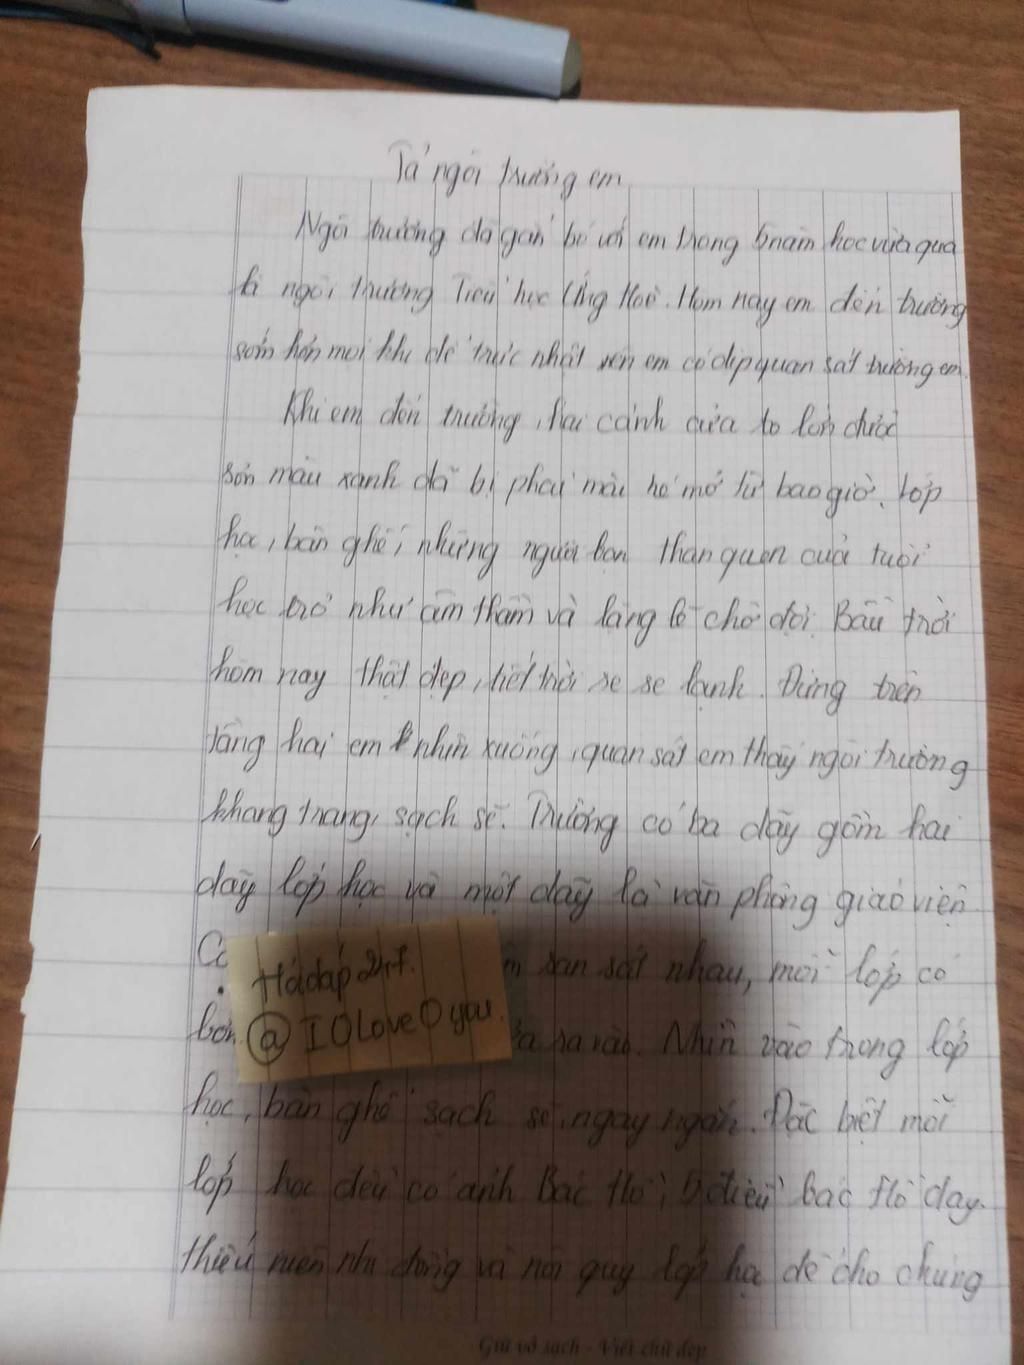 Tả ngôi trường em
Ngôi trường đã gắn bó với em trong 5 năm học vừa qua
là ngôi trường Tiểu học Ứng Hoè. Hôm nay em đến trường
sớm hơn mọi khi để trực nhật nên em có dịp quan sát trường em.
Khi em đến trường, hai cánh cửa to lớn được
sơn màu xanh đã bị phai màu hé mở từ bao giờ. Lớp
học, bàn ghế, những người bạn thân quen của tuổi
học trò như âm thầm và lặng lẽ chờ đợi. Bầu trời
hôm nay thật đẹp, tiết trời se se lạnh. Đứng trên
tầng hai em nhìn xuống, quan sát em thấy ngôi trường
khang trang, sạch sẽ. Trường có ba dãy gồm hai
dãy lớp học và một dãy là văn phòng giáo viên
san sát nhau, mỗi lớp có
ra vào. Nhìn vào trong lớp
Hỏi đáp 247.
@ I 0 Love 0 you.
học, bàn ghế sạch sẽ, ngay ngắn. Đặc biệt mỗi
lớp học đều có ảnh Bác Hồ, 5 điều bác Hồ dạy
thiếu niên nhi đồng và nội quy lớp học để cho chúng
Giữ vở sạch - Viết chữ đẹp